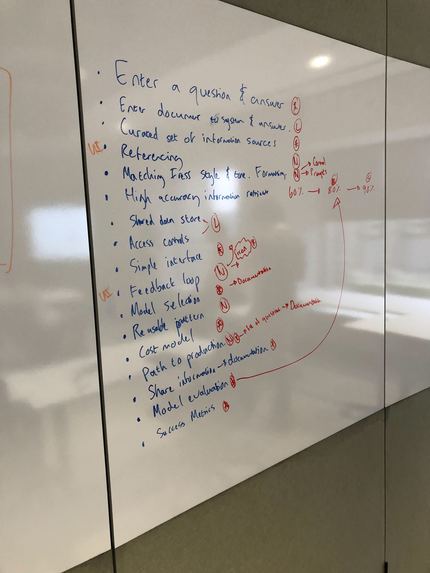 Enter a question & answer
Enter document to system & answer.
Curated set of information sources
UI Referencing
Matching style & tone. Formatting
High accuracy information retrieval 60% → 80% → 95%
Shared data store L
Access controls
Simple interface
UI Feedback loop N
Model selection → Documentation
Reusable pattern N
Cost model
Path to production N → Documentation
Share information → documentation
Model evaluation
Success Metrics